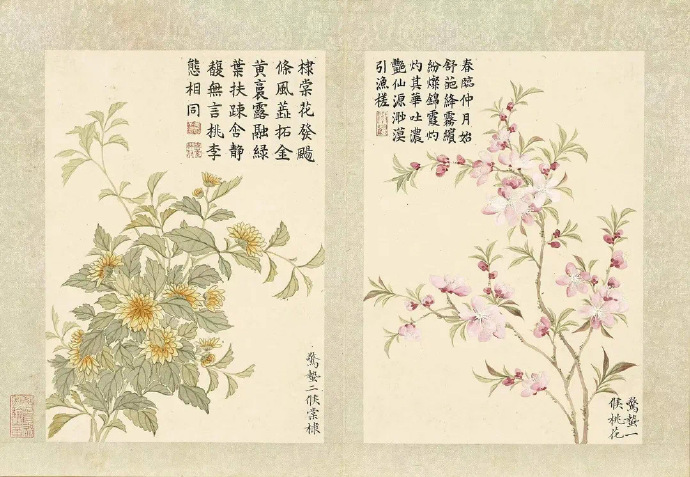 春臨仲月始
舒葩絳霧纈
紛燦錦霞灼
灼其華吐濃
艷仙源渺漠
引漁槎
驚蟄一
候桃花
棣棠花發颺
條風蕋拓金
黃裛露融綠
葉扶疎含静
馥無言桃李
態相同
驚蟄二候棠棣